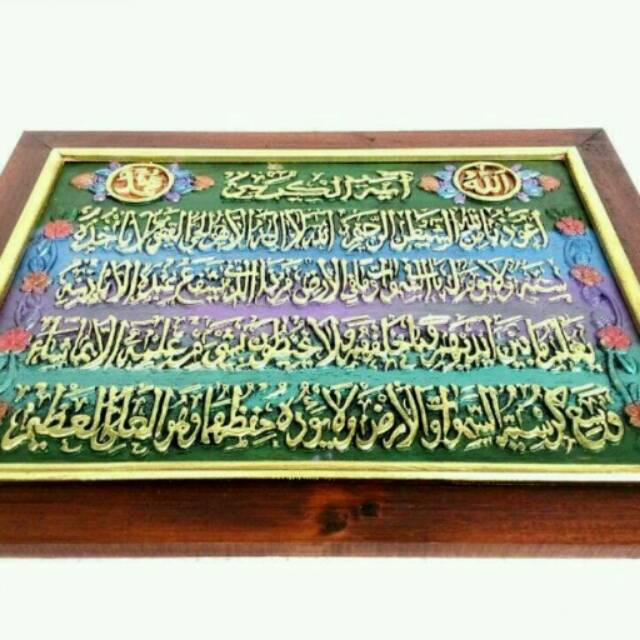 الله آية الكرسي محمد
أعوذ بالله من الشيطن الرجيم الله لا إله إلا هو الحي القيوم لا تأخذه
سنة ولا نوم له ما في السموات وما في الأرض من ذا الذي يشفع عنده إلا بإذنه
يعلم ما بين أيديهم وما خلفهم ولا يحيطون بشيء من علمه إلا بما شاء
وسع كرسيه السموات والأرض ولا يؤده حفظهما وهو العلي العظيم